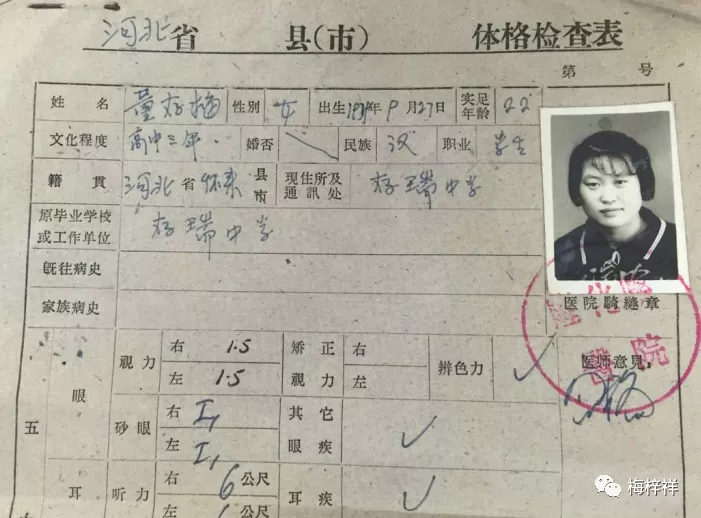 河北省 县(市) 体格检查表
第 号
姓名 董存梅 性別 女 出生 年9月27日 实足年龄 22
文化程度 高中三年. 婚否 民族 汉 职业 学生
籍貫 河北省怀来县市 現住所及通訊处 存瑞中学
原毕业学校或工作单位 存瑞中学
旣往病史
家族病史 医院騎縫章
五 眼 視力 右 1.5 矫正視力 右 辨色力 ✓ 医师意見:
左 1.5 左
砂眼 右 I, 其它眼疾 ✓
左 I,
耳 听力 右 6公尺 耳疾 ✓
左 公尺
院
梅梓祥